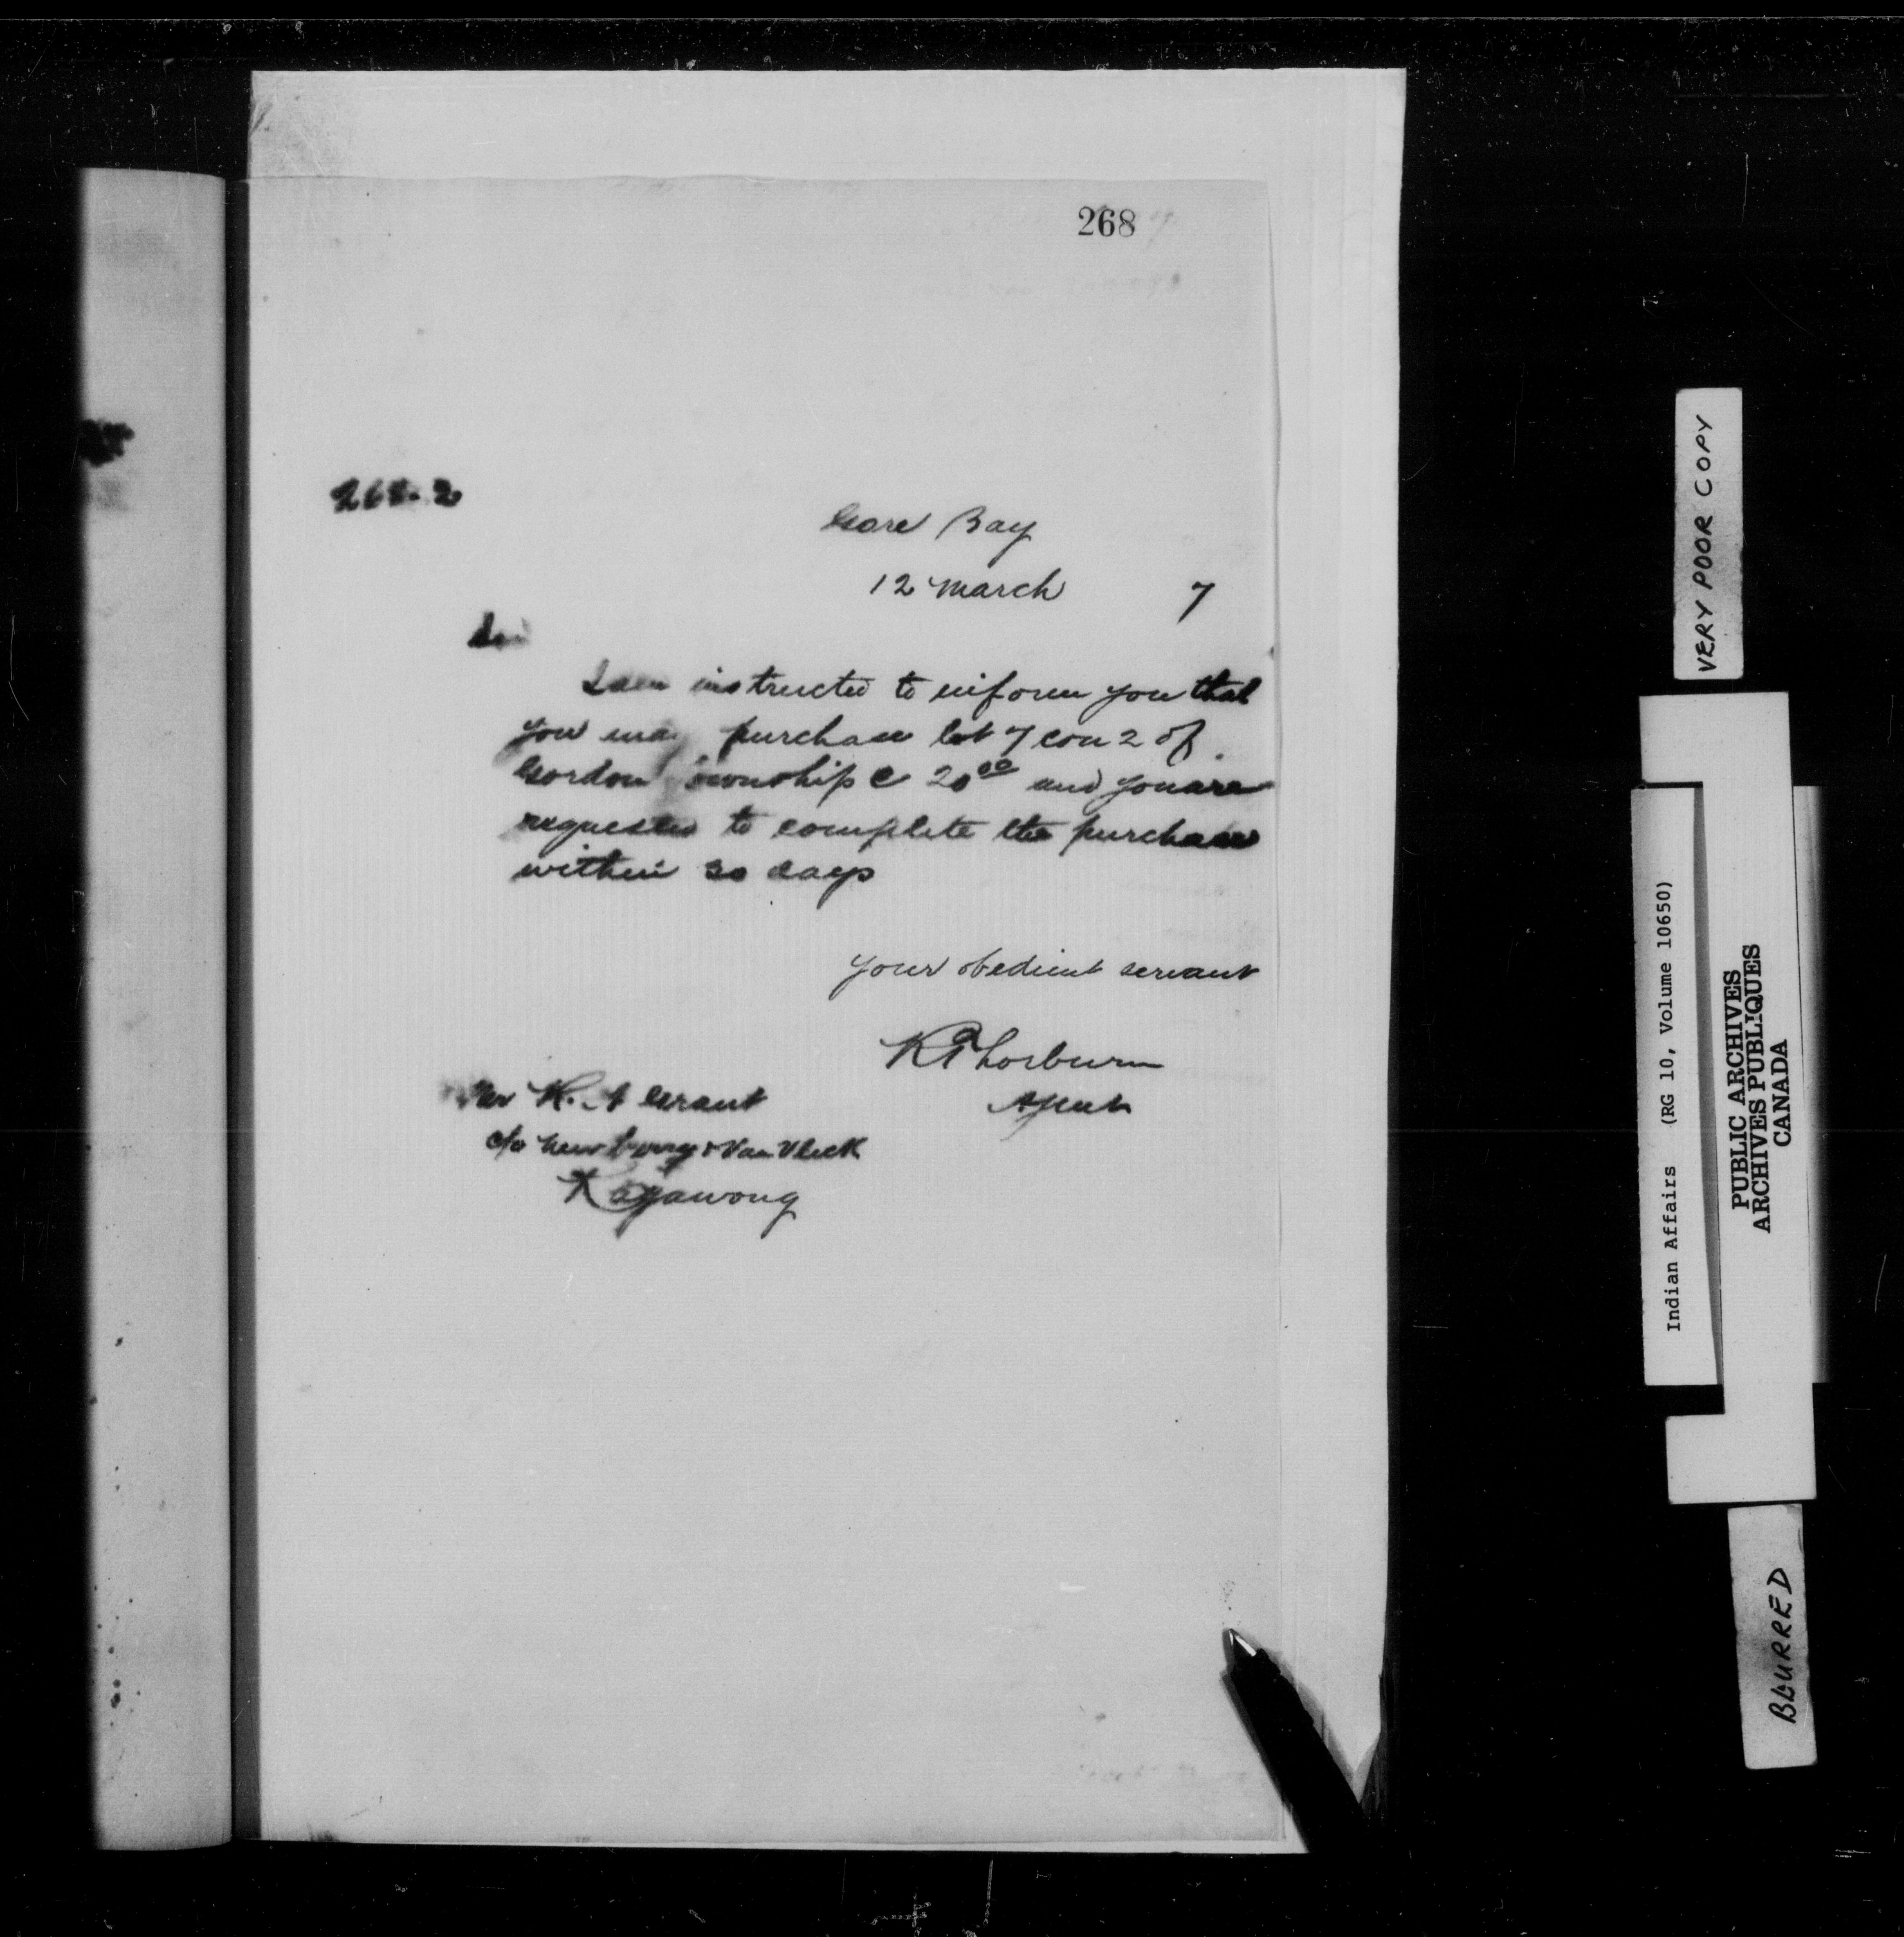 268
268-2
Gore Bay
12 March 7
Sir
I am instructed to inform you that
you may purchase lot 7 con 2 of
Gordon Township @ 20 00 and you are
requested to complete the purchase
within 30 days
Your obedient servant
R Thorburn
Agent
Mr Grant
c/o Newburn & Van Vleck
Kagawong
VERY POOR COPY
Indian Affairs (RG 10, Volume 10650)
PUBLIC ARCHIVES
ARCHIVES PUBLIQUES
CANADA
BLURRED